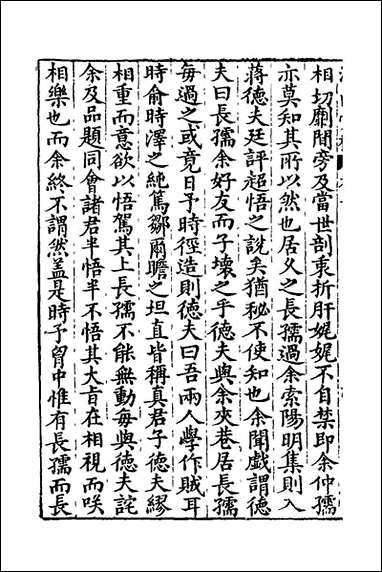 相切劘間旁及當世剖衷折肝娓娓不自禁即余仲孺
亦莫知其所以然也居久之長孺過余索陽明集則入
蔣德夫廷評超悟之說矣猶秘不使知也余聞戲謂德
夫曰長孺余好友而子壞之乎德夫與余夾巷居長孺
每過之或竟日予時徑造則德夫曰吾兩人學作賊耳
時俞時澤之純篤鄒爾瞻之坦直皆稱真君子德夫繆
相重而意欲以悟駕其上長孺不能無動每與德夫詫
余及品題同會諸君半悟半不悟其大旨在相視而咲
相樂也而余終不謂然盖是時予胷中惟有長孺而長